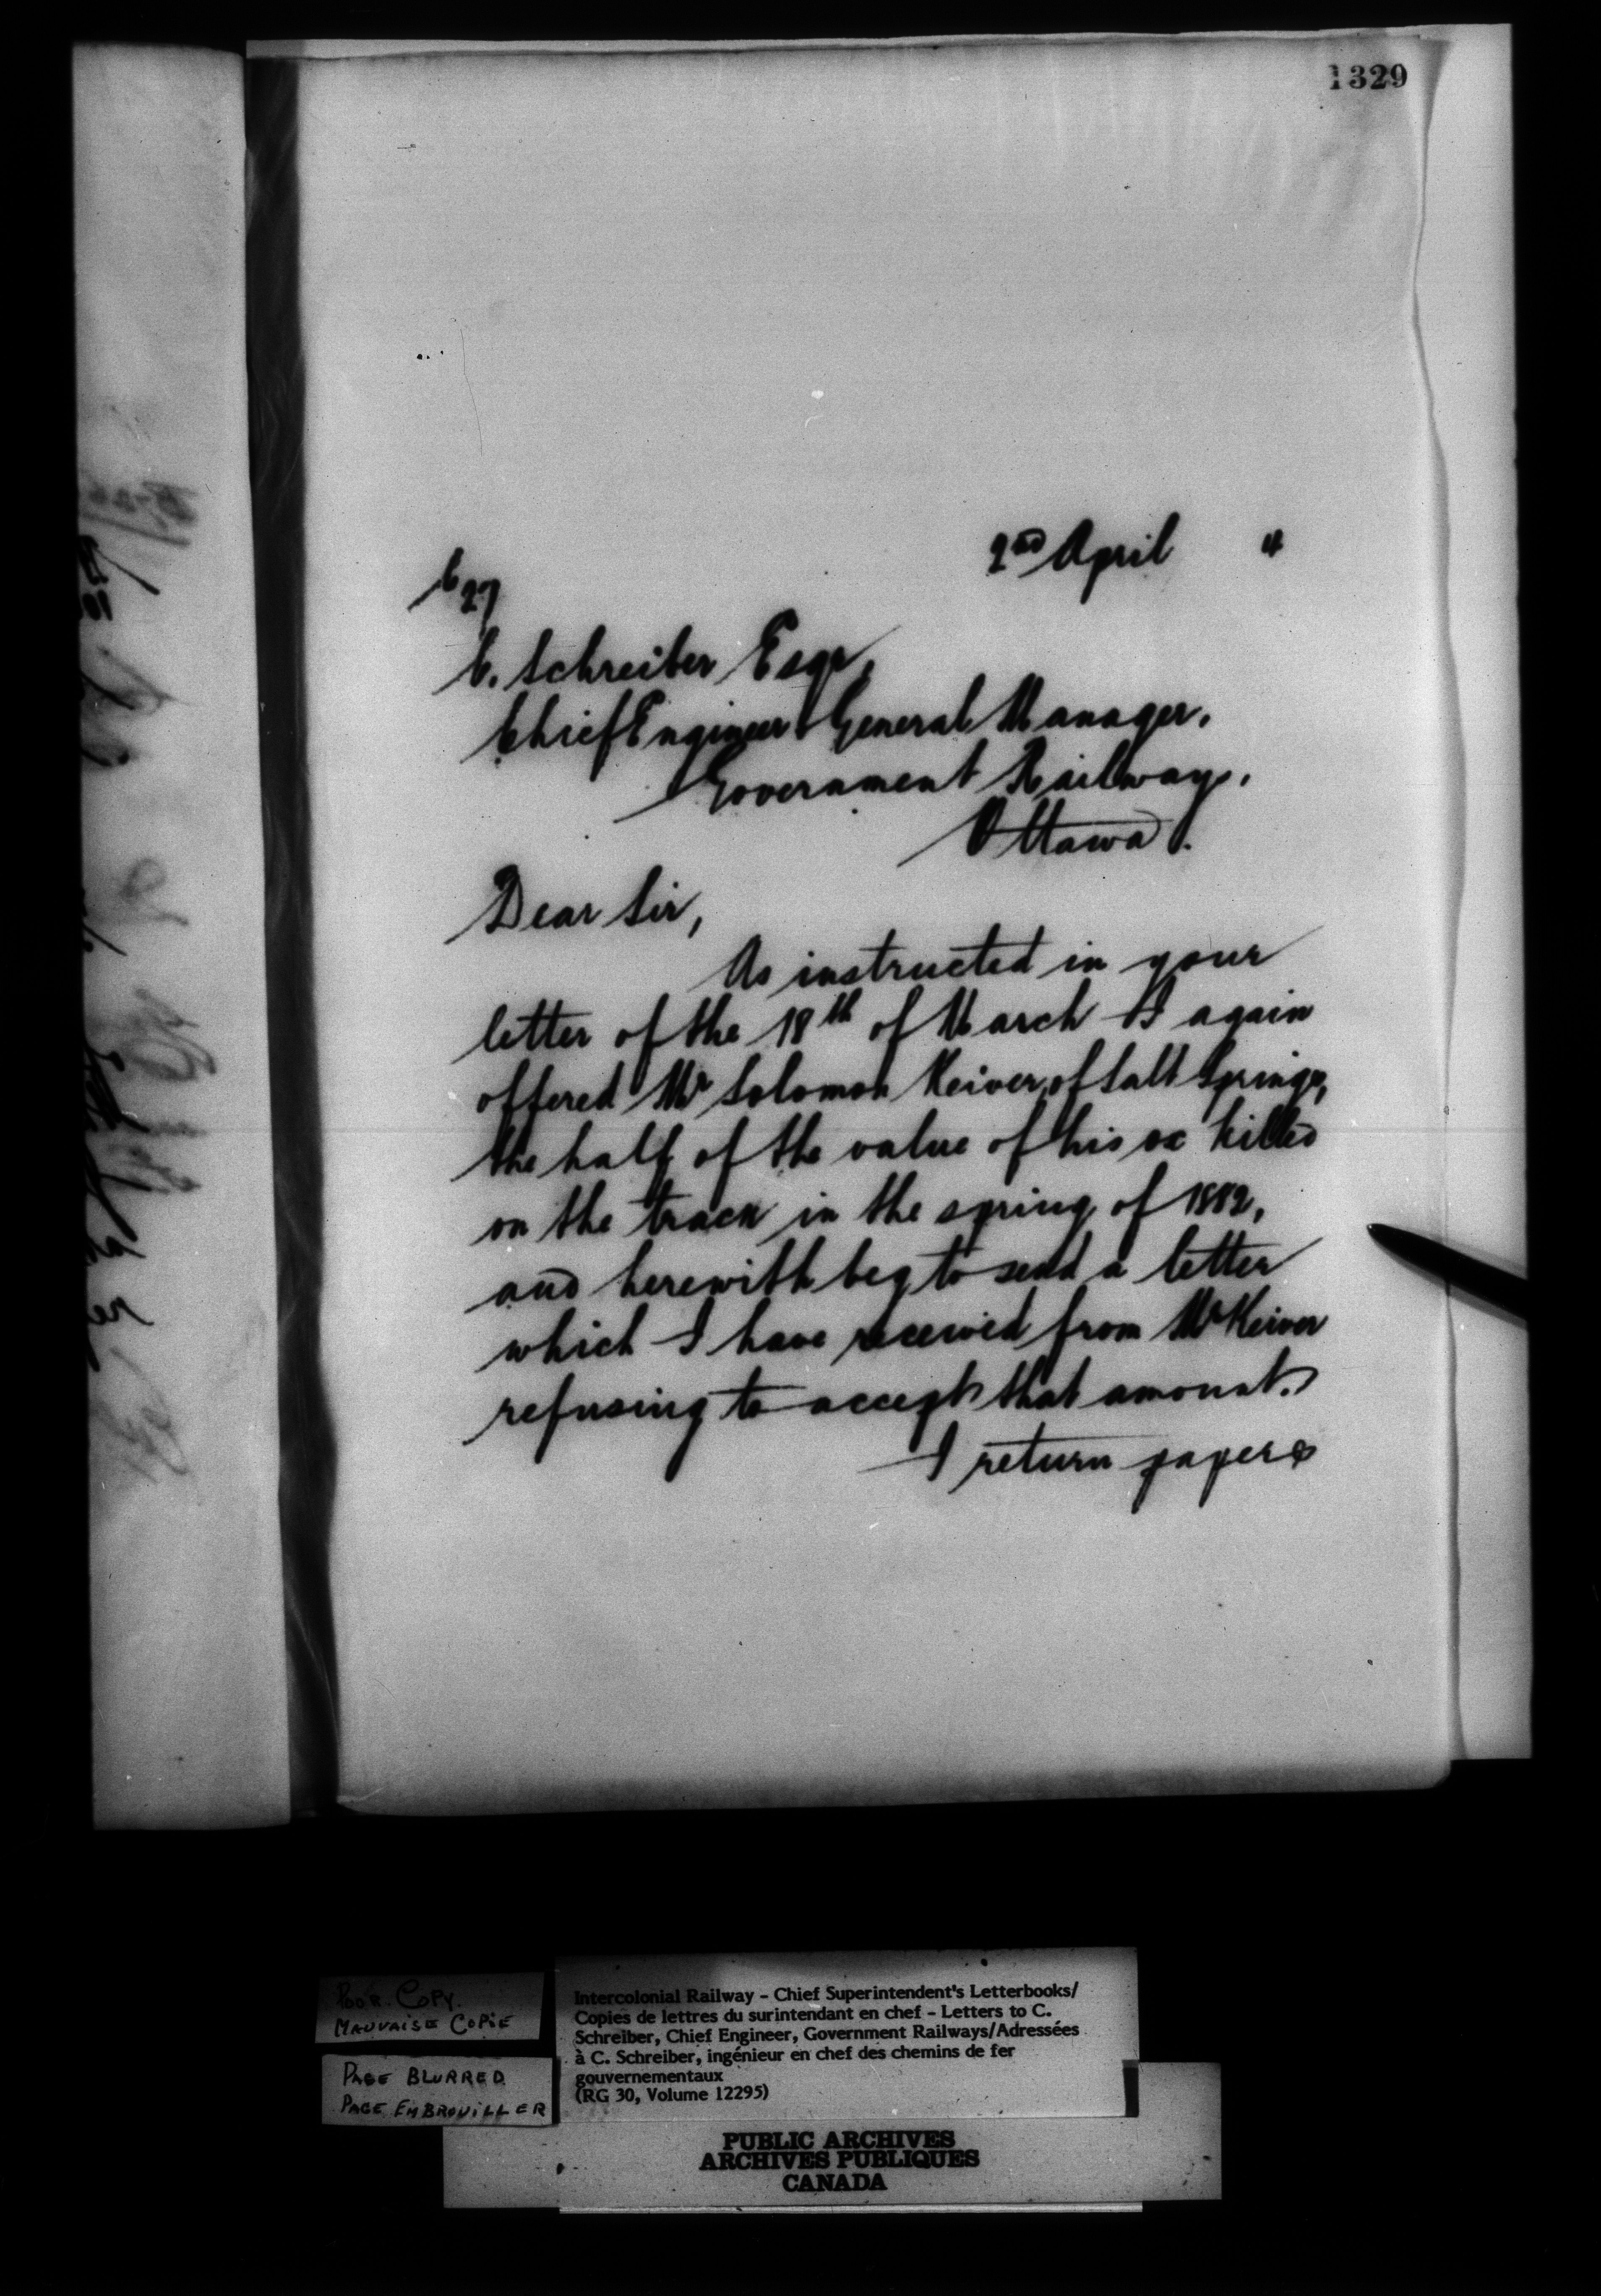 1329
2nd April 4
C 27
C. Schreiber Esqr,
Chief Engineer & General Manager.
Government Railways.
Ottawa.
Dear Sir,
As instructed in your
letter of the 18th of March I again
offered Mr Solomon Keiver, of Salt Springs,
the half of the value of his ox killed
on the track in the spring of 1882,
and herewith beg to send a letter
which I have received from Mr Keiver
refusing to accept that amount.
I return papers
POOR COPY.
MAUVAISE COPIE
PAGE BLURRED
PAGE EMBROUILLER
Intercolonial Railway – Chief Superintendent's Letterbooks/
Copies de lettres du surintendant en chef – Letters to C.
Schreiber, Chief Engineer, Government Railways/Adressées
à C. Schreiber, ingénieur en chef des chemins de fer
gouvernementaux
(RG 30, Volume 12295)
PUBLIC ARCHIVES
ARCHIVES PUBLIQUES
CANADA